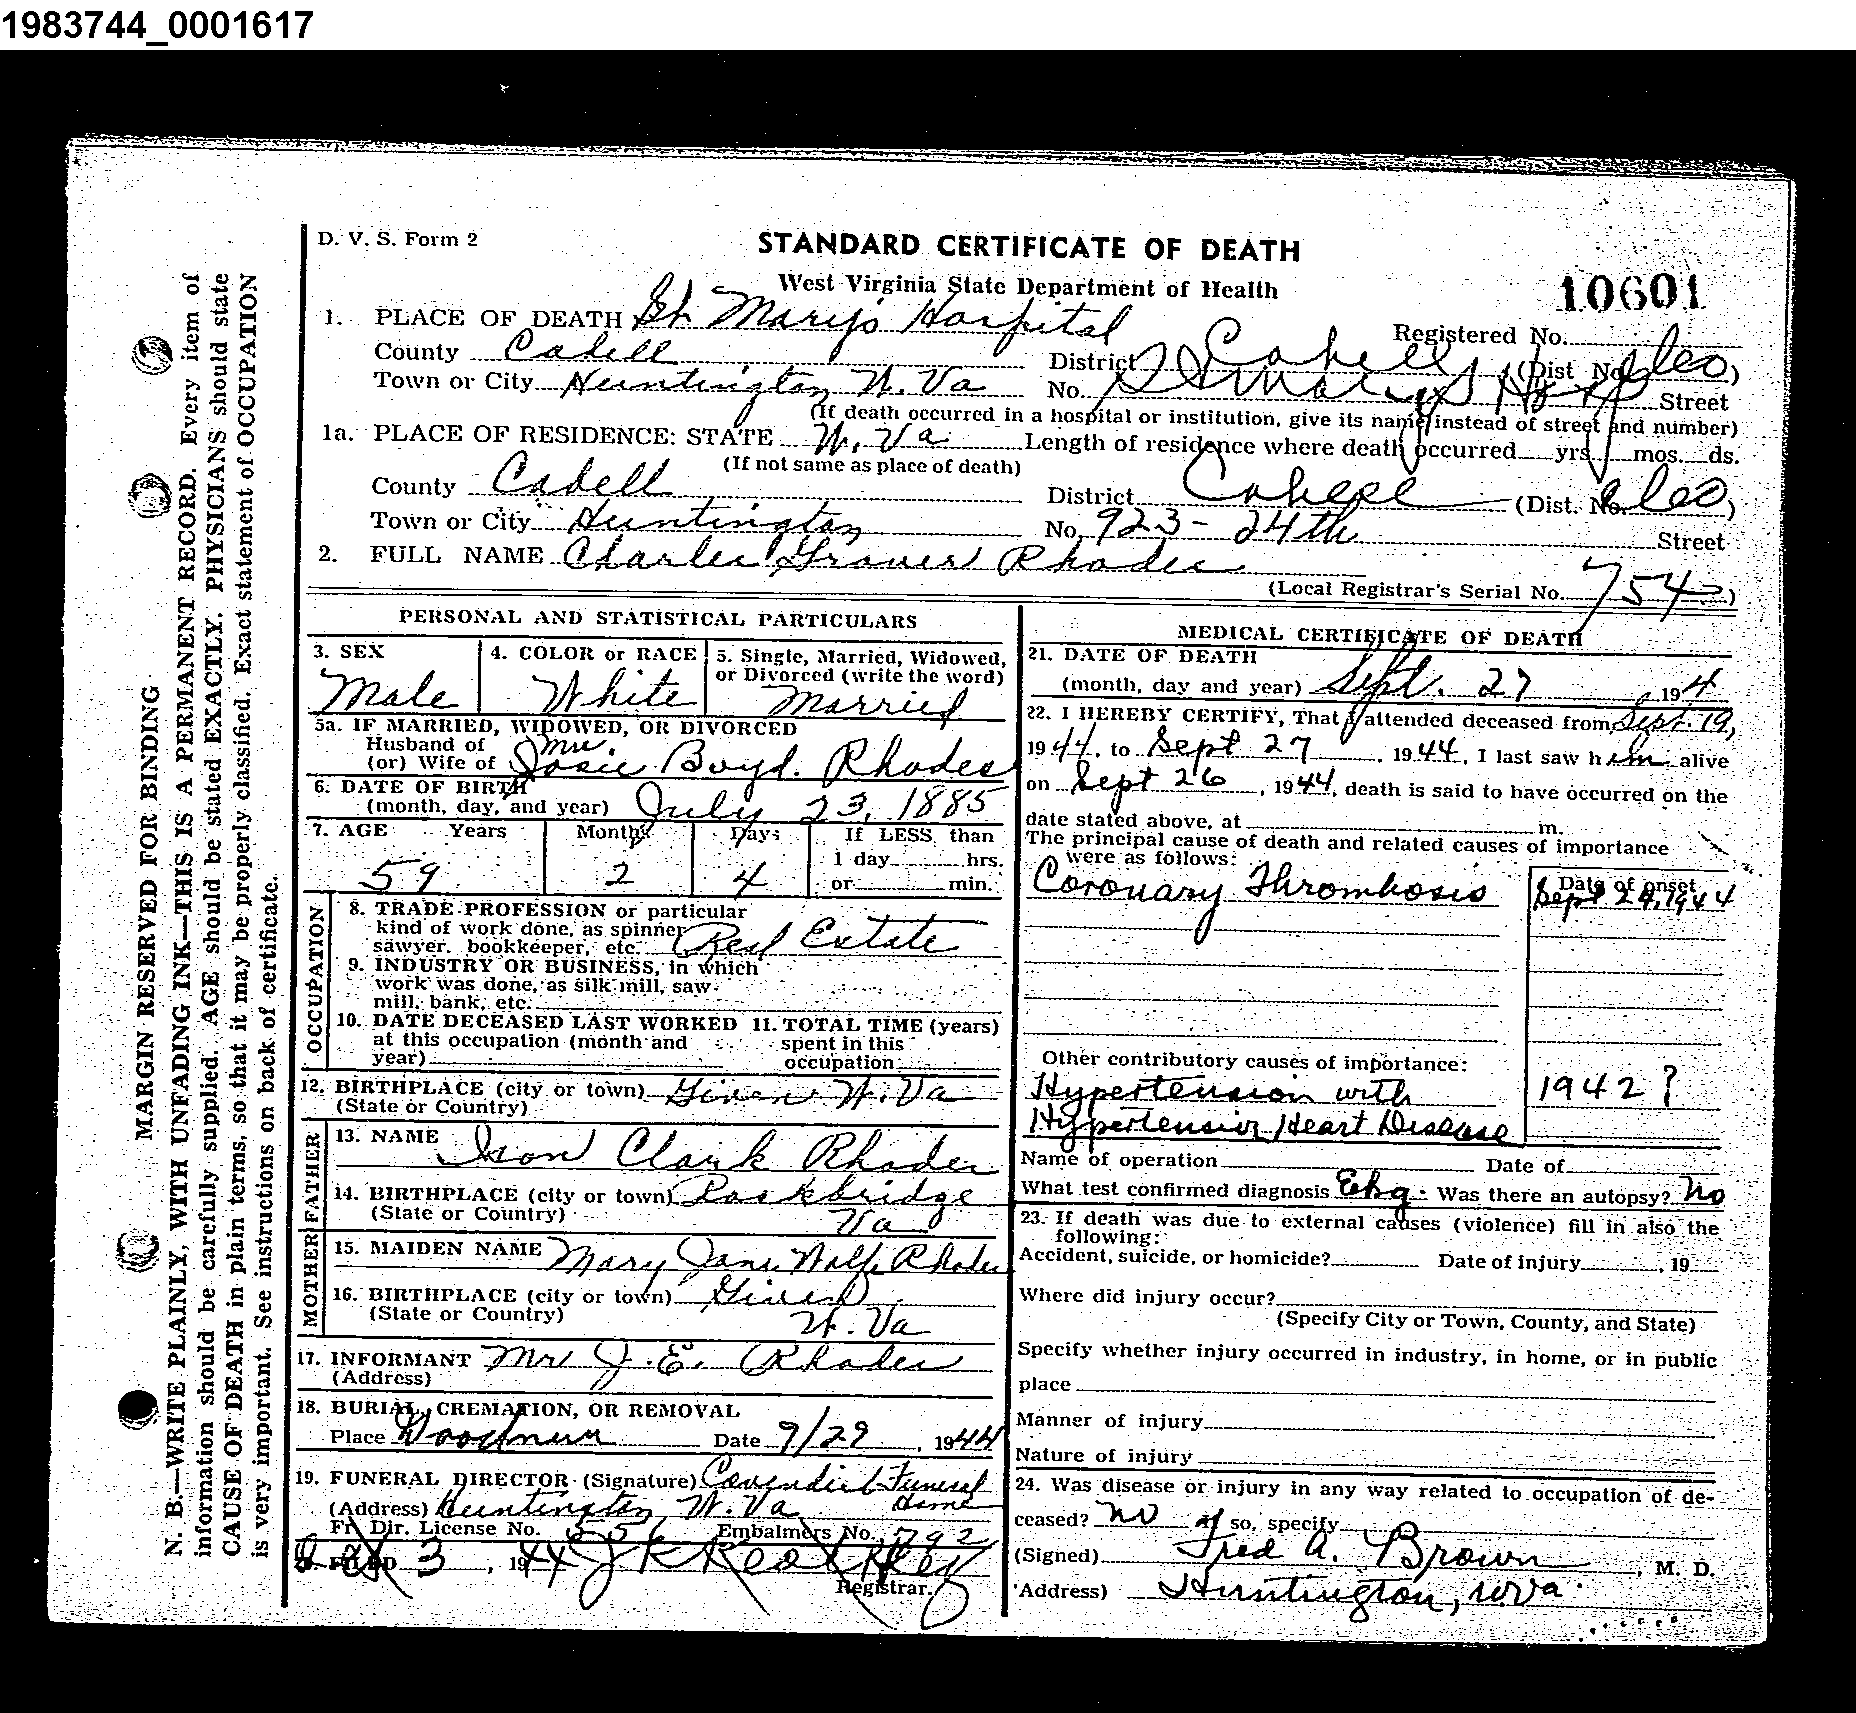 1983744_0001617
D. V. S. Form 2
STANDARD CERTIFICATE OF DEATH
West Virginia State Department of Health
10601
1. PLACE OF DEATH St Mary's Hospital
Registered No.
County Cabell District Cabell (Dist. No. )
Town or City Huntington W. Va No. St Marys Street
(If death occurred in a hospital or institution, give its name instead of street and number)
1a. PLACE OF RESIDENCE: STATE W. Va Length of residence where death occurred yrs. mos. ds.
(If not same as place of death)
County Cabell District Cabell (Dist. No. )
Town or City Huntington No. 923-24th Street
2. FULL NAME Charles Grover Rhodes
(Local Registrar's Serial No. 754)
PERSONAL AND STATISTICAL PARTICULARS
3. SEX Male
4. COLOR or RACE White
5. Single, Married, Widowed, or Divorced (write the word) Married
5a. IF MARRIED, WIDOWED, OR DIVORCED
Husband of Mrs.
(or) Wife of Josie Boyd. Rhodes
6. DATE OF BIRTH
(month, day, and year) July 23, 1885
7. AGE Years Months Days If LESS than
1 day hrs.
59 2 4 or min.
OCCUPATION
8. TRADE PROFESSION or particular
kind of work done, as spinner
sawyer, bookkeeper, etc. Real Estate
9. INDUSTRY OR BUSINESS, in which
work was done, as silk mill, saw-
mill, bank, etc.
10. DATE DECEASED LAST WORKED
at this occupation (month and
year)
11. TOTAL TIME (years)
spent in this
occupation
12. BIRTHPLACE (city or town) Given W. Va
(State or Country)
FATHER
13. NAME Ison Clark Rhodes
14. BIRTHPLACE (city or town) Rockbridge
(State or Country) Va
MOTHER
15. MAIDEN NAME Mary Jane Wolfe Rhodes
16. BIRTHPLACE (city or town) Given
(State or Country) W. Va
17. INFORMANT Mr J. E. Rhodes
(Address)
18. BURIAL, CREMATION, OR REMOVAL
Place Woodmere Date 9/29, 1944
19. FUNERAL DIRECTOR (Signature) Cavendish Funeral Home
(Address) Huntington, W. Va
Fr. Dir. License No. Embalmers No. 792
20. FILED 3, 1944
Registrar.
MEDICAL CERTIFICATE OF DEATH
21. DATE OF DEATH
(month, day and year) Sept. 27, 194
22. I HEREBY CERTIFY, That I attended deceased from Sept. 19,
1944, to Sept 27, 1944, I last saw him alive
on Sept 26, 1944, death is said to have occurred on the
date stated above, at m.
The principal cause of death and related causes of importance
were as follows:
Date of onset
Coronary Thrombosis Sept 24, 1944
Other contributory causes of importance:
Hypertension with 1942?
Hypertensive Heart Disease
Name of operation Date of
What test confirmed diagnosis Ekg. Was there an autopsy? No
23. If death was due to external causes (violence) fill in also the
following:
Accident, suicide, or homicide? Date of injury , 19
Where did injury occur?
(Specify City or Town, County, and State)
Specify whether injury occurred in industry, in home, or in public
place
Manner of injury
Nature of injury
24. Was disease or injury in any way related to occupation of de-
ceased? No If so, specify
(Signed) Fred A. Brown, M. D.
(Address) Huntington, W Va.
MARGIN RESERVED FOR BINDING
N. B.—WRITE PLAINLY, WITH UNFADING INK—THIS IS A PERMANENT RECORD. Every item of
information should be carefully supplied. AGE should be stated EXACTLY. PHYSICIANS should state
CAUSE OF DEATH in plain terms, so that it may be properly classified. Exact statement of OCCUPATION
is very important. See instructions on back of certificate.